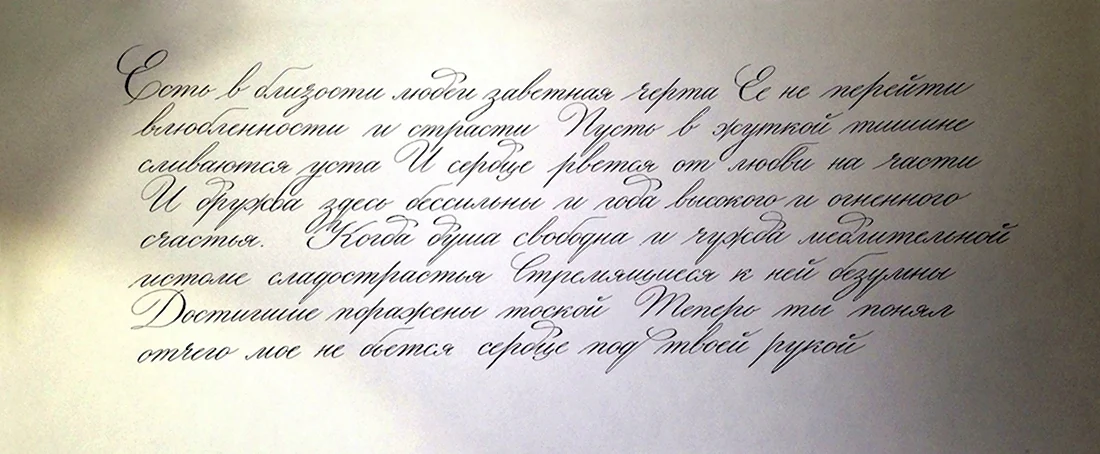 Есть в близости людей заветная черта Ее не перейти
влюбленности и страсти Пусть в жуткой тишине
сливаются уста И сердце рвется от любви на части
И дружба здесь бессильны и года высокого и огненного
счастья. Когда душа свободна и чужда медлительной
истоме сладострастья Стремящиеся к ней безумны
Достигшие поражены тоской Теперь ты понял
отчего мое не бьется сердце под твоей рукой